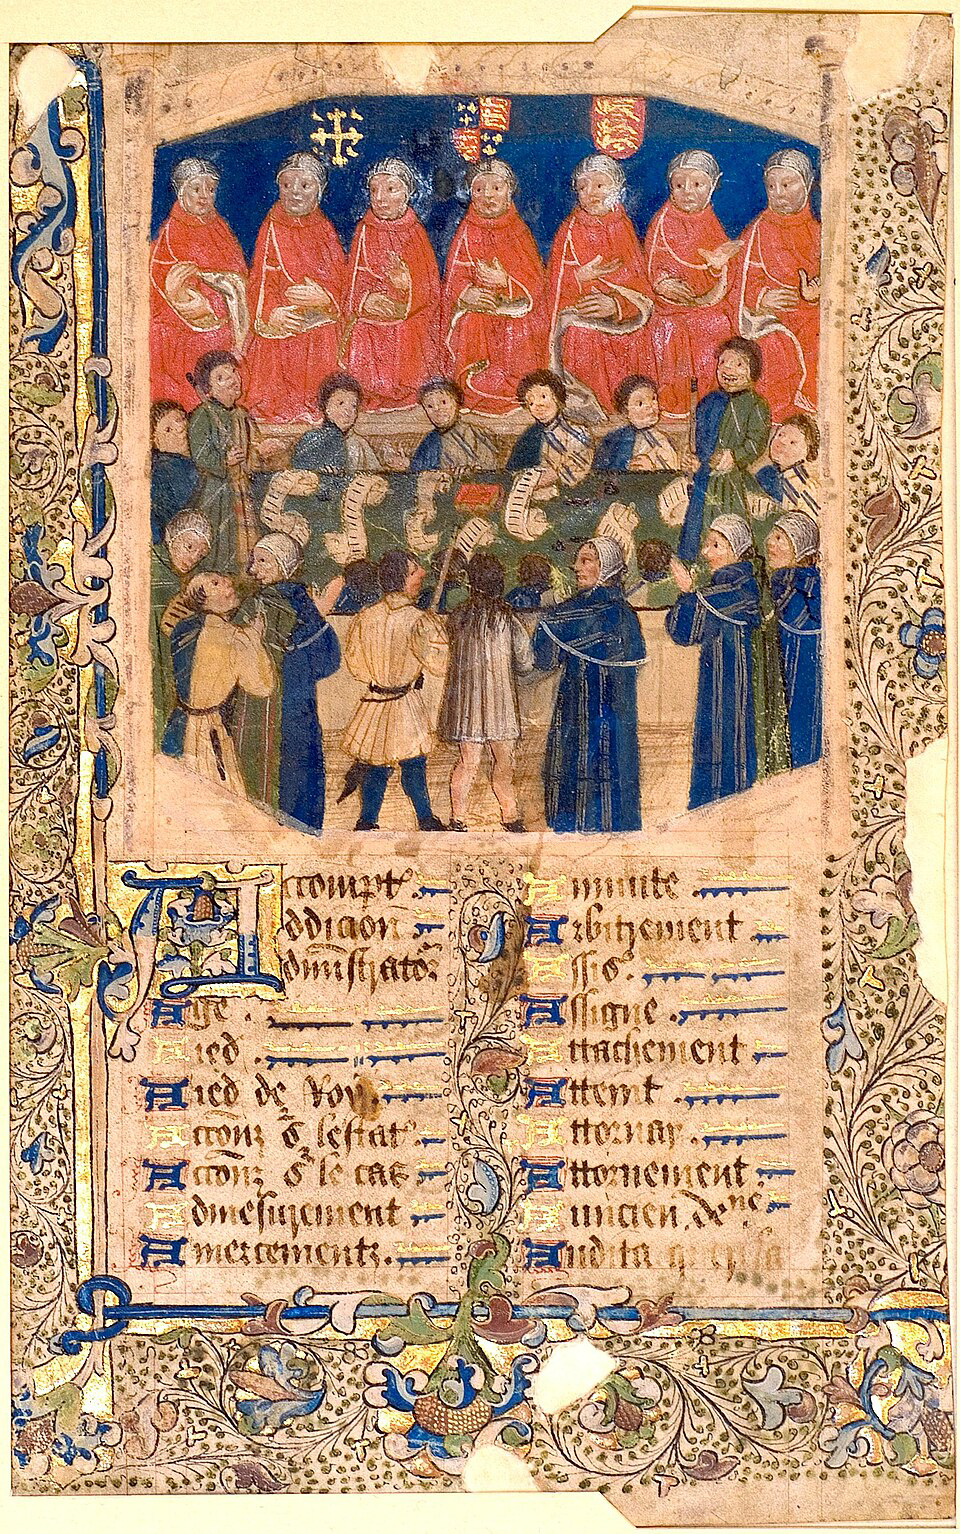 Accompt
Addicion
Administrator
Age
Aied
Aied de Roy
Accōnz s̄ lestat
Accōnz s̄ le cas
Admesurement
Amercementz
Annuite
Arbitrement
Assis̄
Assigne
Attachement
Atteint
Attornay
Attornement
Auncien demne
Audita querela